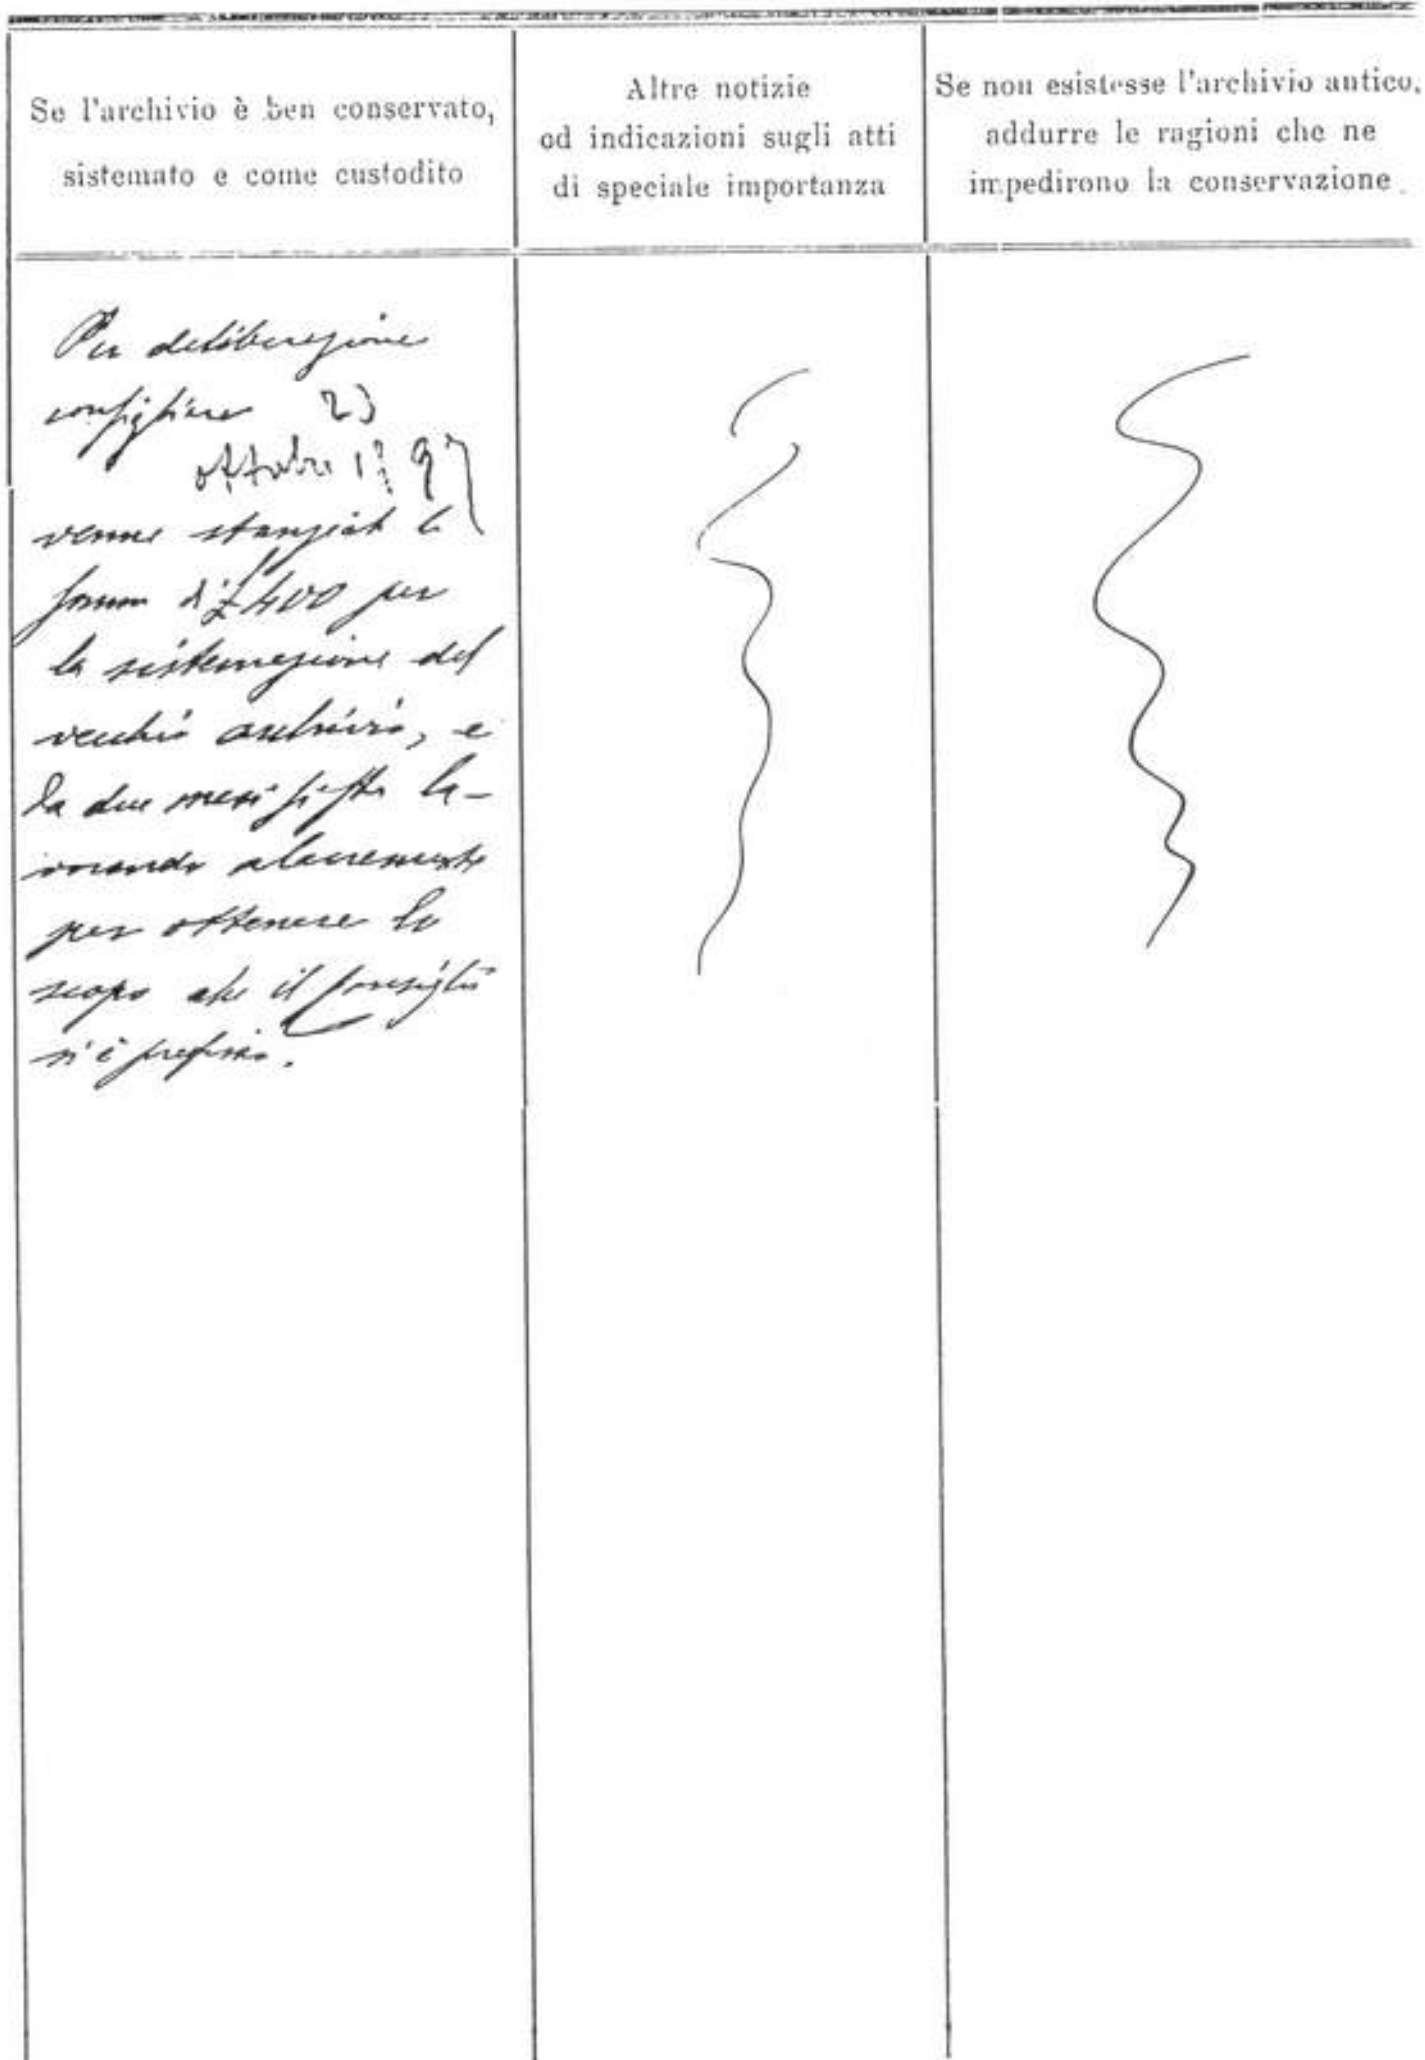 Se l'archivio è ben conservato,
sistemato e come custodito
Altre notizie
ed indicazioni sugli atti
di speciale importanza
Se non esistesse l'archivio antico,
addurre le ragioni che ne
impedirono la conservazione
Per deliberazione
consigliare 23
ottobre 97
venne stanziata la
somma di £400 per
la sistemazione del
vecchio archivio, e
da due mesi si sta la-
vorando alacremente
per ottenere lo
scopo che il Consiglio
si è prefisso.